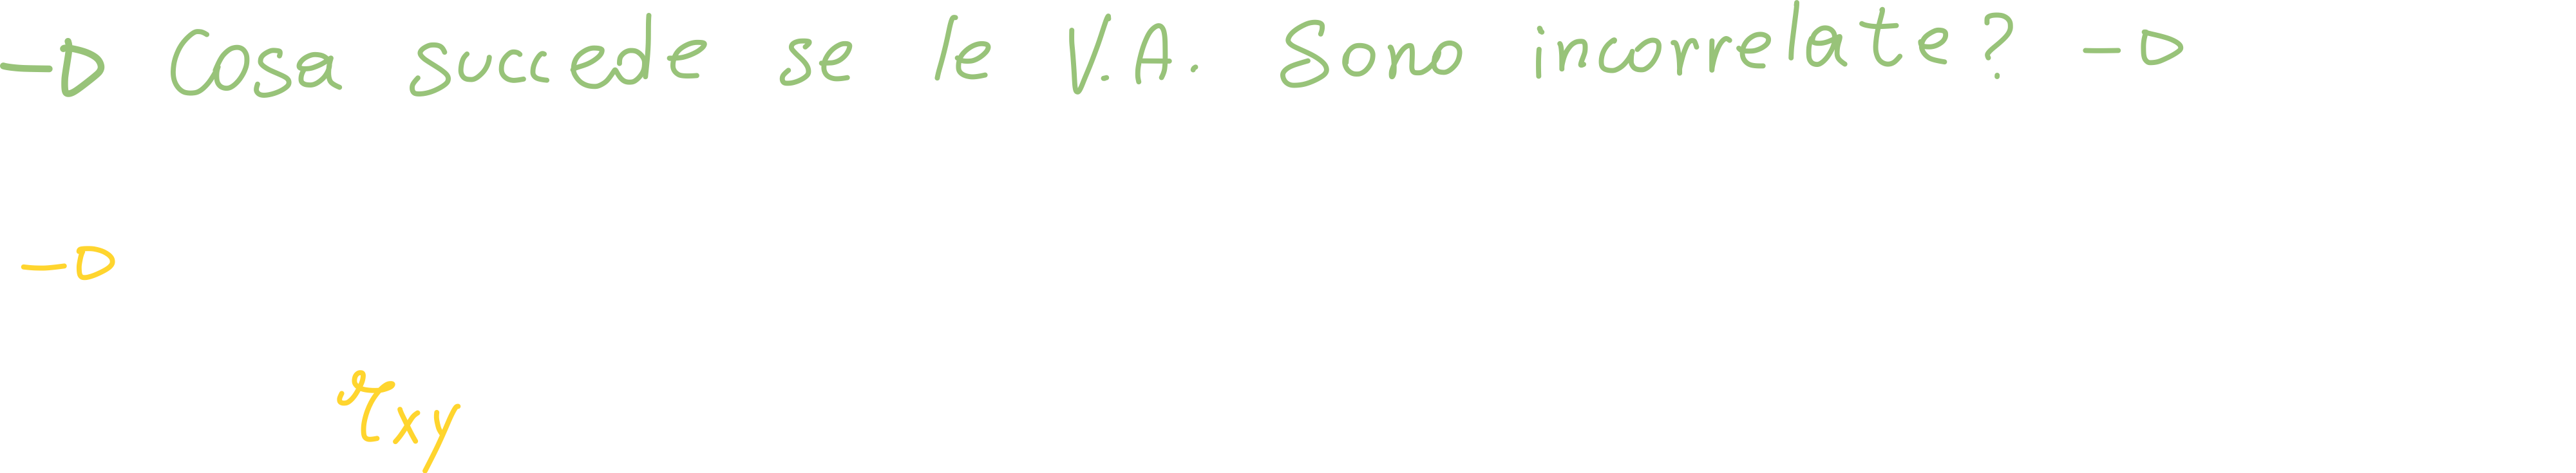 → Cosa succede se le V.A. Sono incorrelate? →
→
r_xy